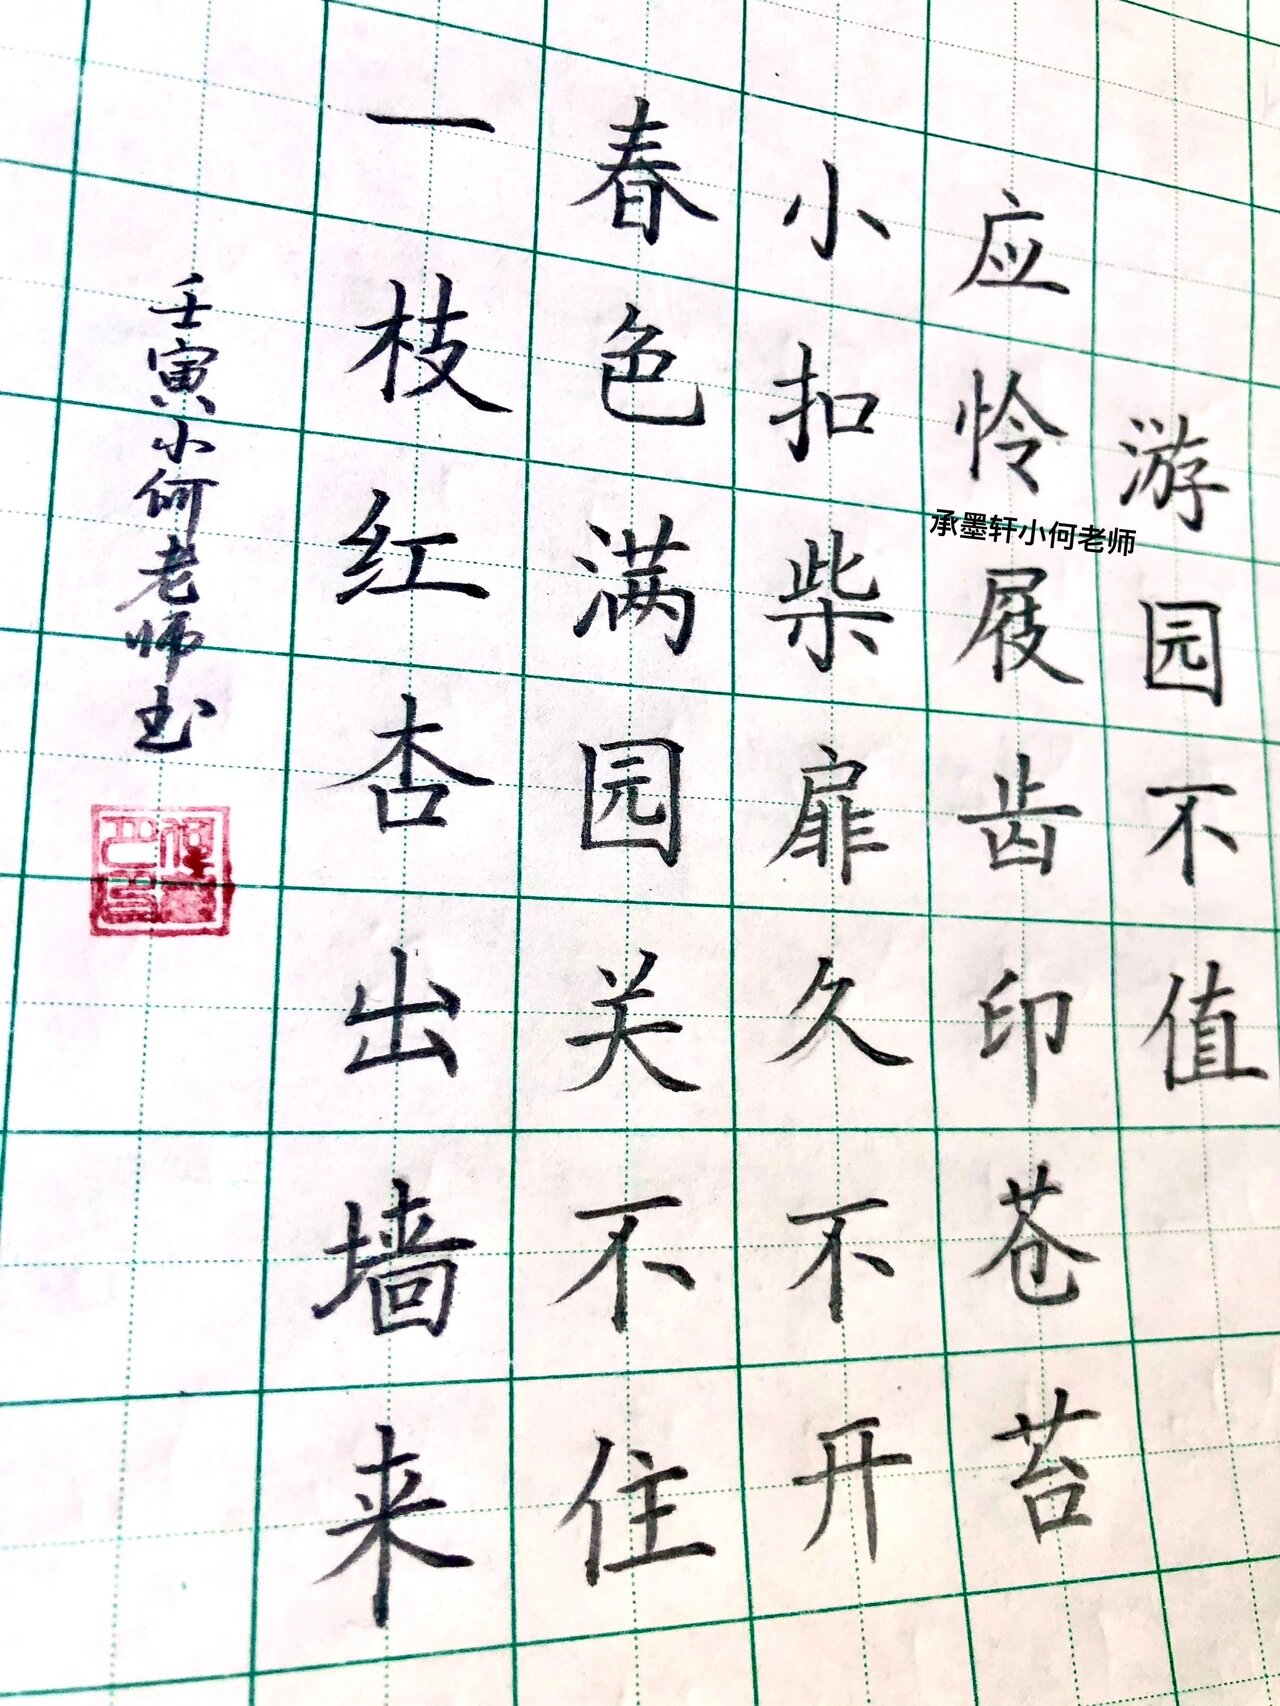 游园不值
应怜屐齿印苍苔
小扣柴扉久不开
春色满园关不住
一枝红杏出墙来
壬寅小何老师书
承墨轩小何老师